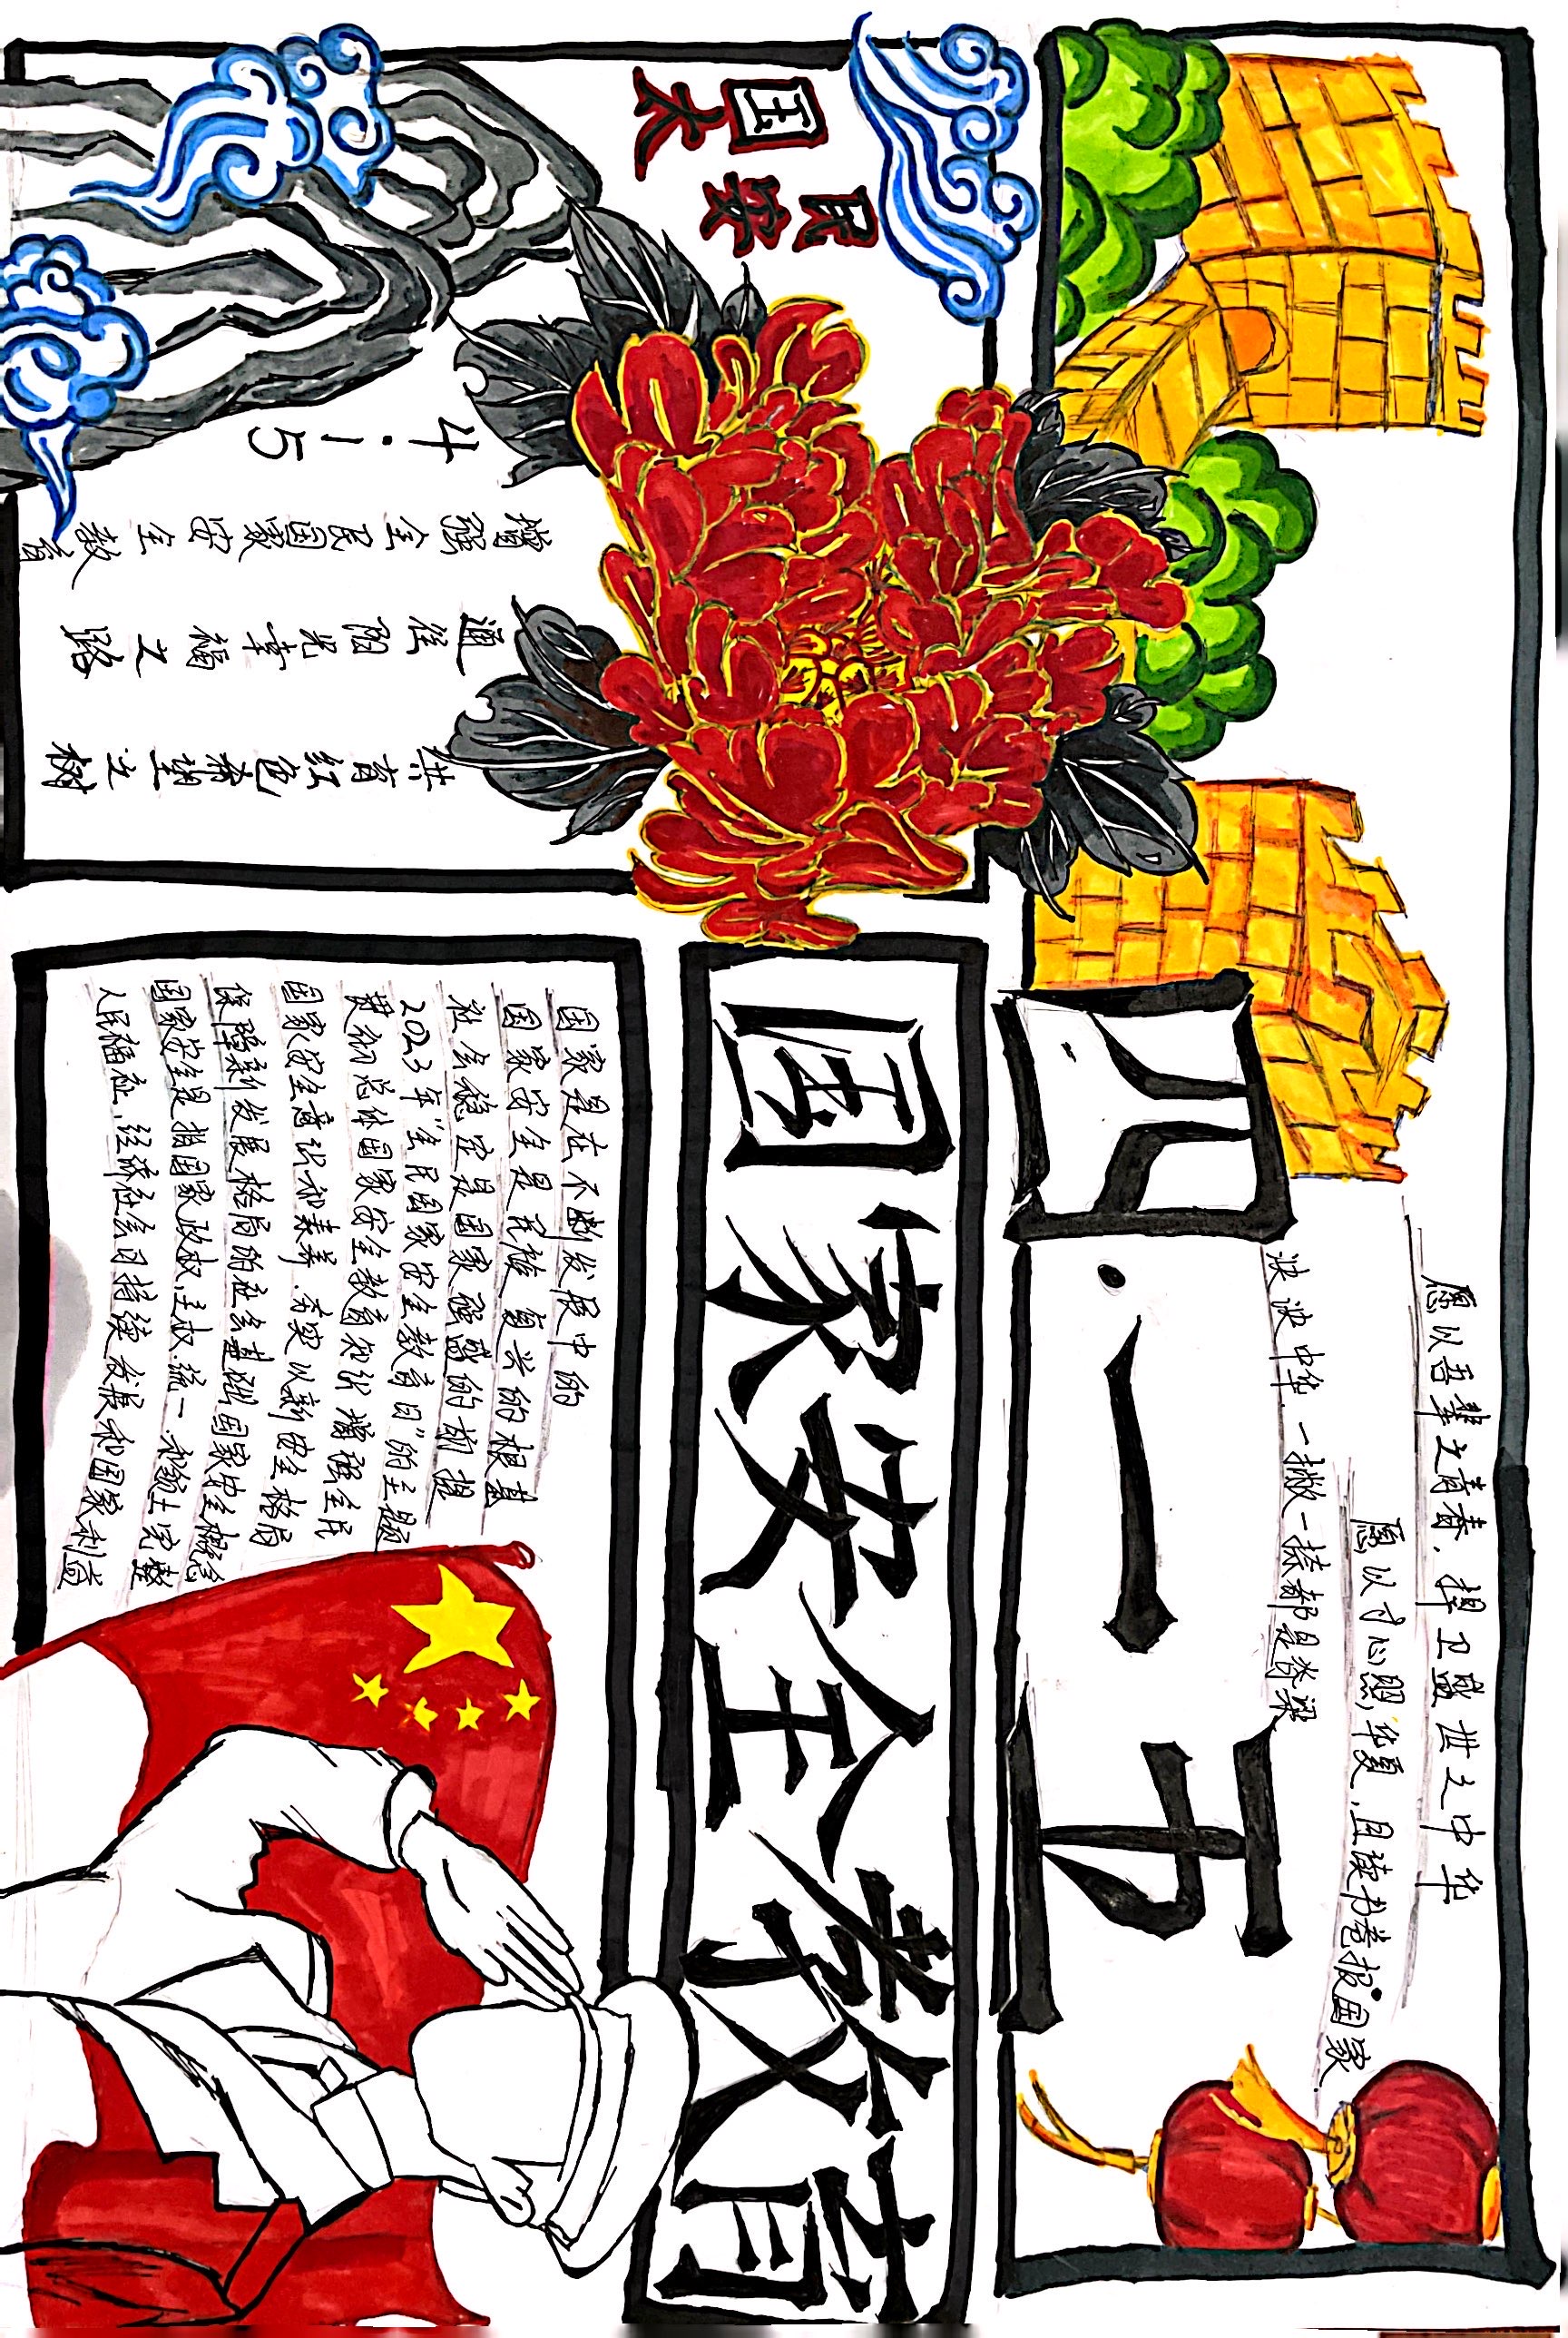 愿以吾辈之青春，捍卫盛世之中华
愿以寸心照华夏，且读书卷报国家
泱泱中华，一撇一捺都是脊梁
四·一五
国家安全教育
国太
民安
4·15
增强全民国家安全教育
通往阳光幸福之路
共育红色希望之树
国家是在不断发展中的
国家安全是民族复兴的根基
社会稳定是国家强盛的前提
2023年“全民国家安全教育日”的主题
贯彻总体国家安全教育知识 增强全民
国家安全意识和素养，夯实以新安全格局
保障新发展格局的社会基础国家安全概念
国家安全是指国家政权、主权、统一和领土完整
人民福祉、经济社会可持续发展和国家利益